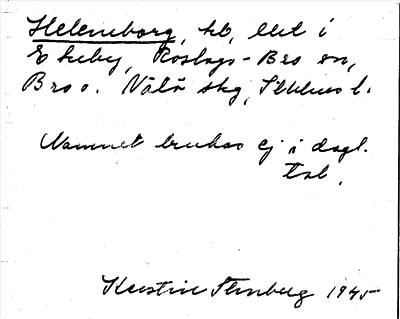 Heleneborg, hb, del i
Ekeby, Roslags-Bro sn,
Bro o. Vätö skg, Sthlms l.
Namnet brukas ej i dagl.
tal.
Kerstin Stenberg 1945